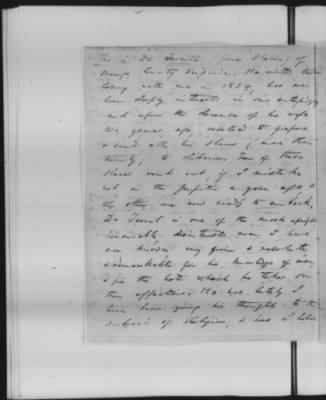 This is Dr Terrill, (James Hunter) of
Orange County Virginia. He visited this
Colony with me in 1859, has ever
been deeply interested in our enterprise
and upon the decease of his wife
two years ago, resolved to prepare
& send all his slaves (more than
twenty,) to Liberia. Ten of these
slaves went out, if I mistake
not in the Jupiter a year ago &
the others are now ready to embark.
Dr Terrell is one of the most upright
honorable disinterested men I have
ever known, very firm & resolute,
& remarkable for his knowledge of men
& for the hold which he takes on
their affections. He has lately I
been giving his thoughts to the
subject of Religion, & has I believe